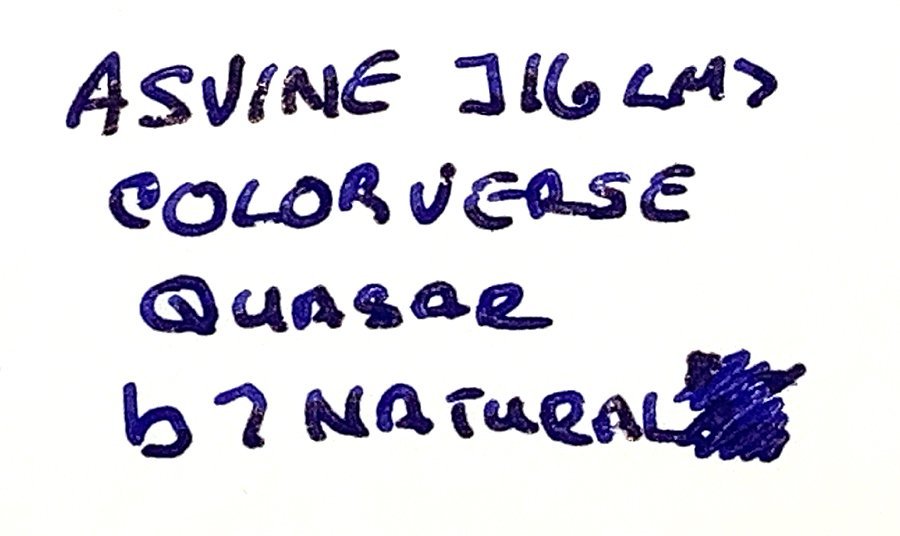 ASVINE J16 <M>
COLORVERSE
QUASAR
b7 NATURAL